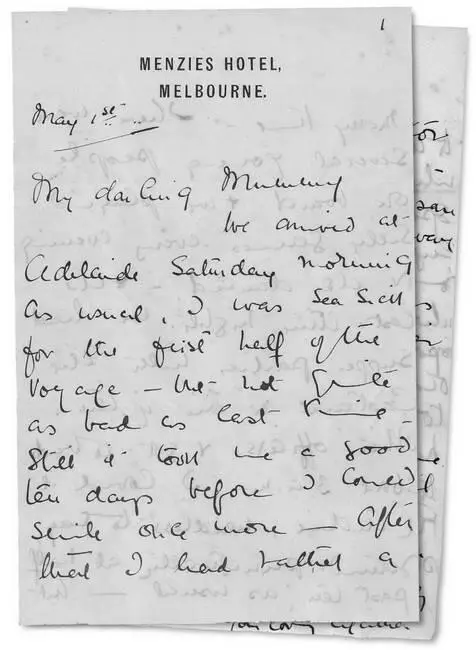 1
MENZIES HOTEL,
MELBOURNE.
May 1st
My darling Mummy
We arrived at
Adelaide Saturday morning
as usual, I was Sea Sick
for the first half of the
Voyage – tho not quite
as bad as last time –
Still it took me a good
ten days before I could
smile once more – After
that I had rather a